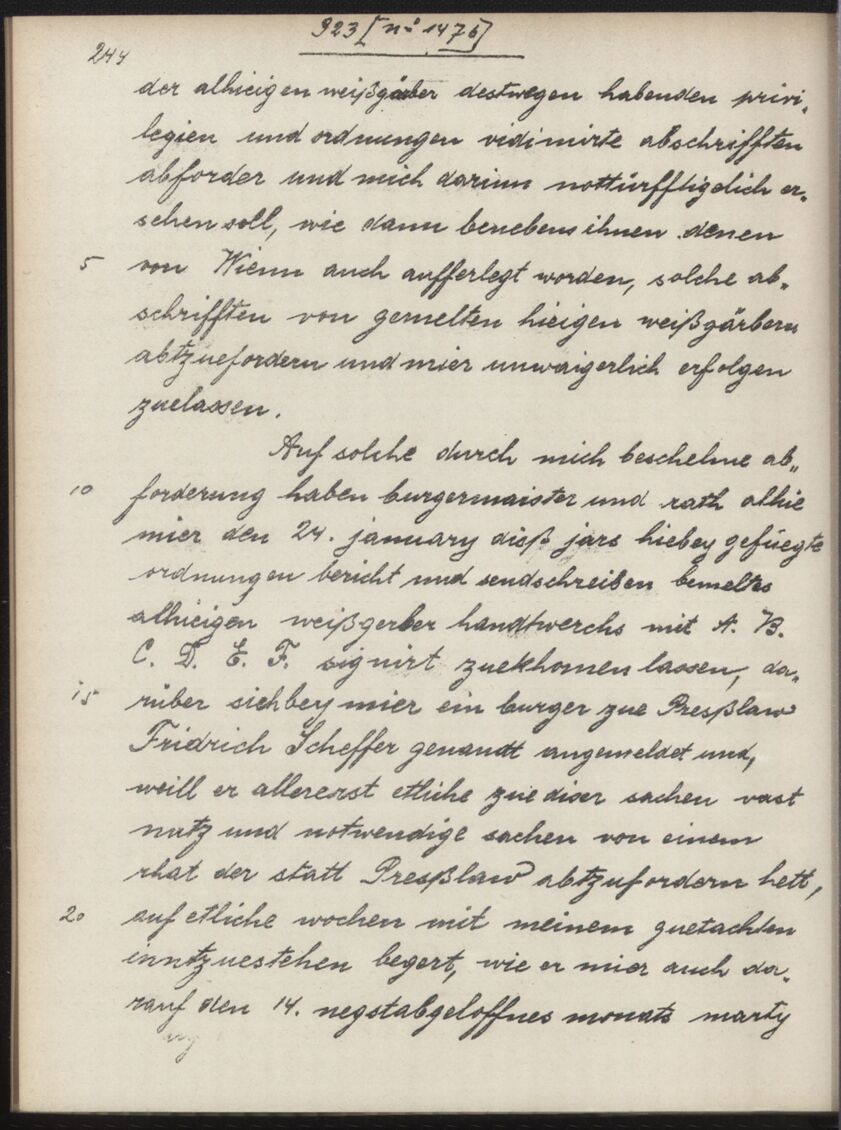 923 [nº 1476]
244
der alhieigen weißgärber destwegen habenden privi„
legien und ordnungen vidimirte abschrifften
abforder und mich darinn nottürfftigelich er„
sehen soll, wie dann benebens ihnen denen
5 von Wienn auch aufferlegt worden, solche ab„
schrifften von gemelten hieigen weißgärbern
abtzuefordern und mier unwaigerlich erfolgen
zuelassen.
Auf solche durch mich beschehne ab„
10 forderung haben burgermaister und rath alhie
mier den 24. january diß jars hiebey gefüegte
ordnungen bericht und sendschreiben bemeltes
alhieigen weißgerber handtwerchs mit A. B.
C. D. E. F. signirt zuekhomen lassen, da„
15 rüber sich bey mier ein burger zue Presßlaw
Fridrich Scheffer genandt angemeldet und,
weill er allererst etliche zue diser sachen vast
nutz und notwendige sachen von einem
rhat der statt Presßlaw abtzufordern hett,
20 auf etliche wochen mit meinem guetachten
inntzuestehen begert, wie er mier auch da„
rauf den 14. negstabgeloffnes monats marty